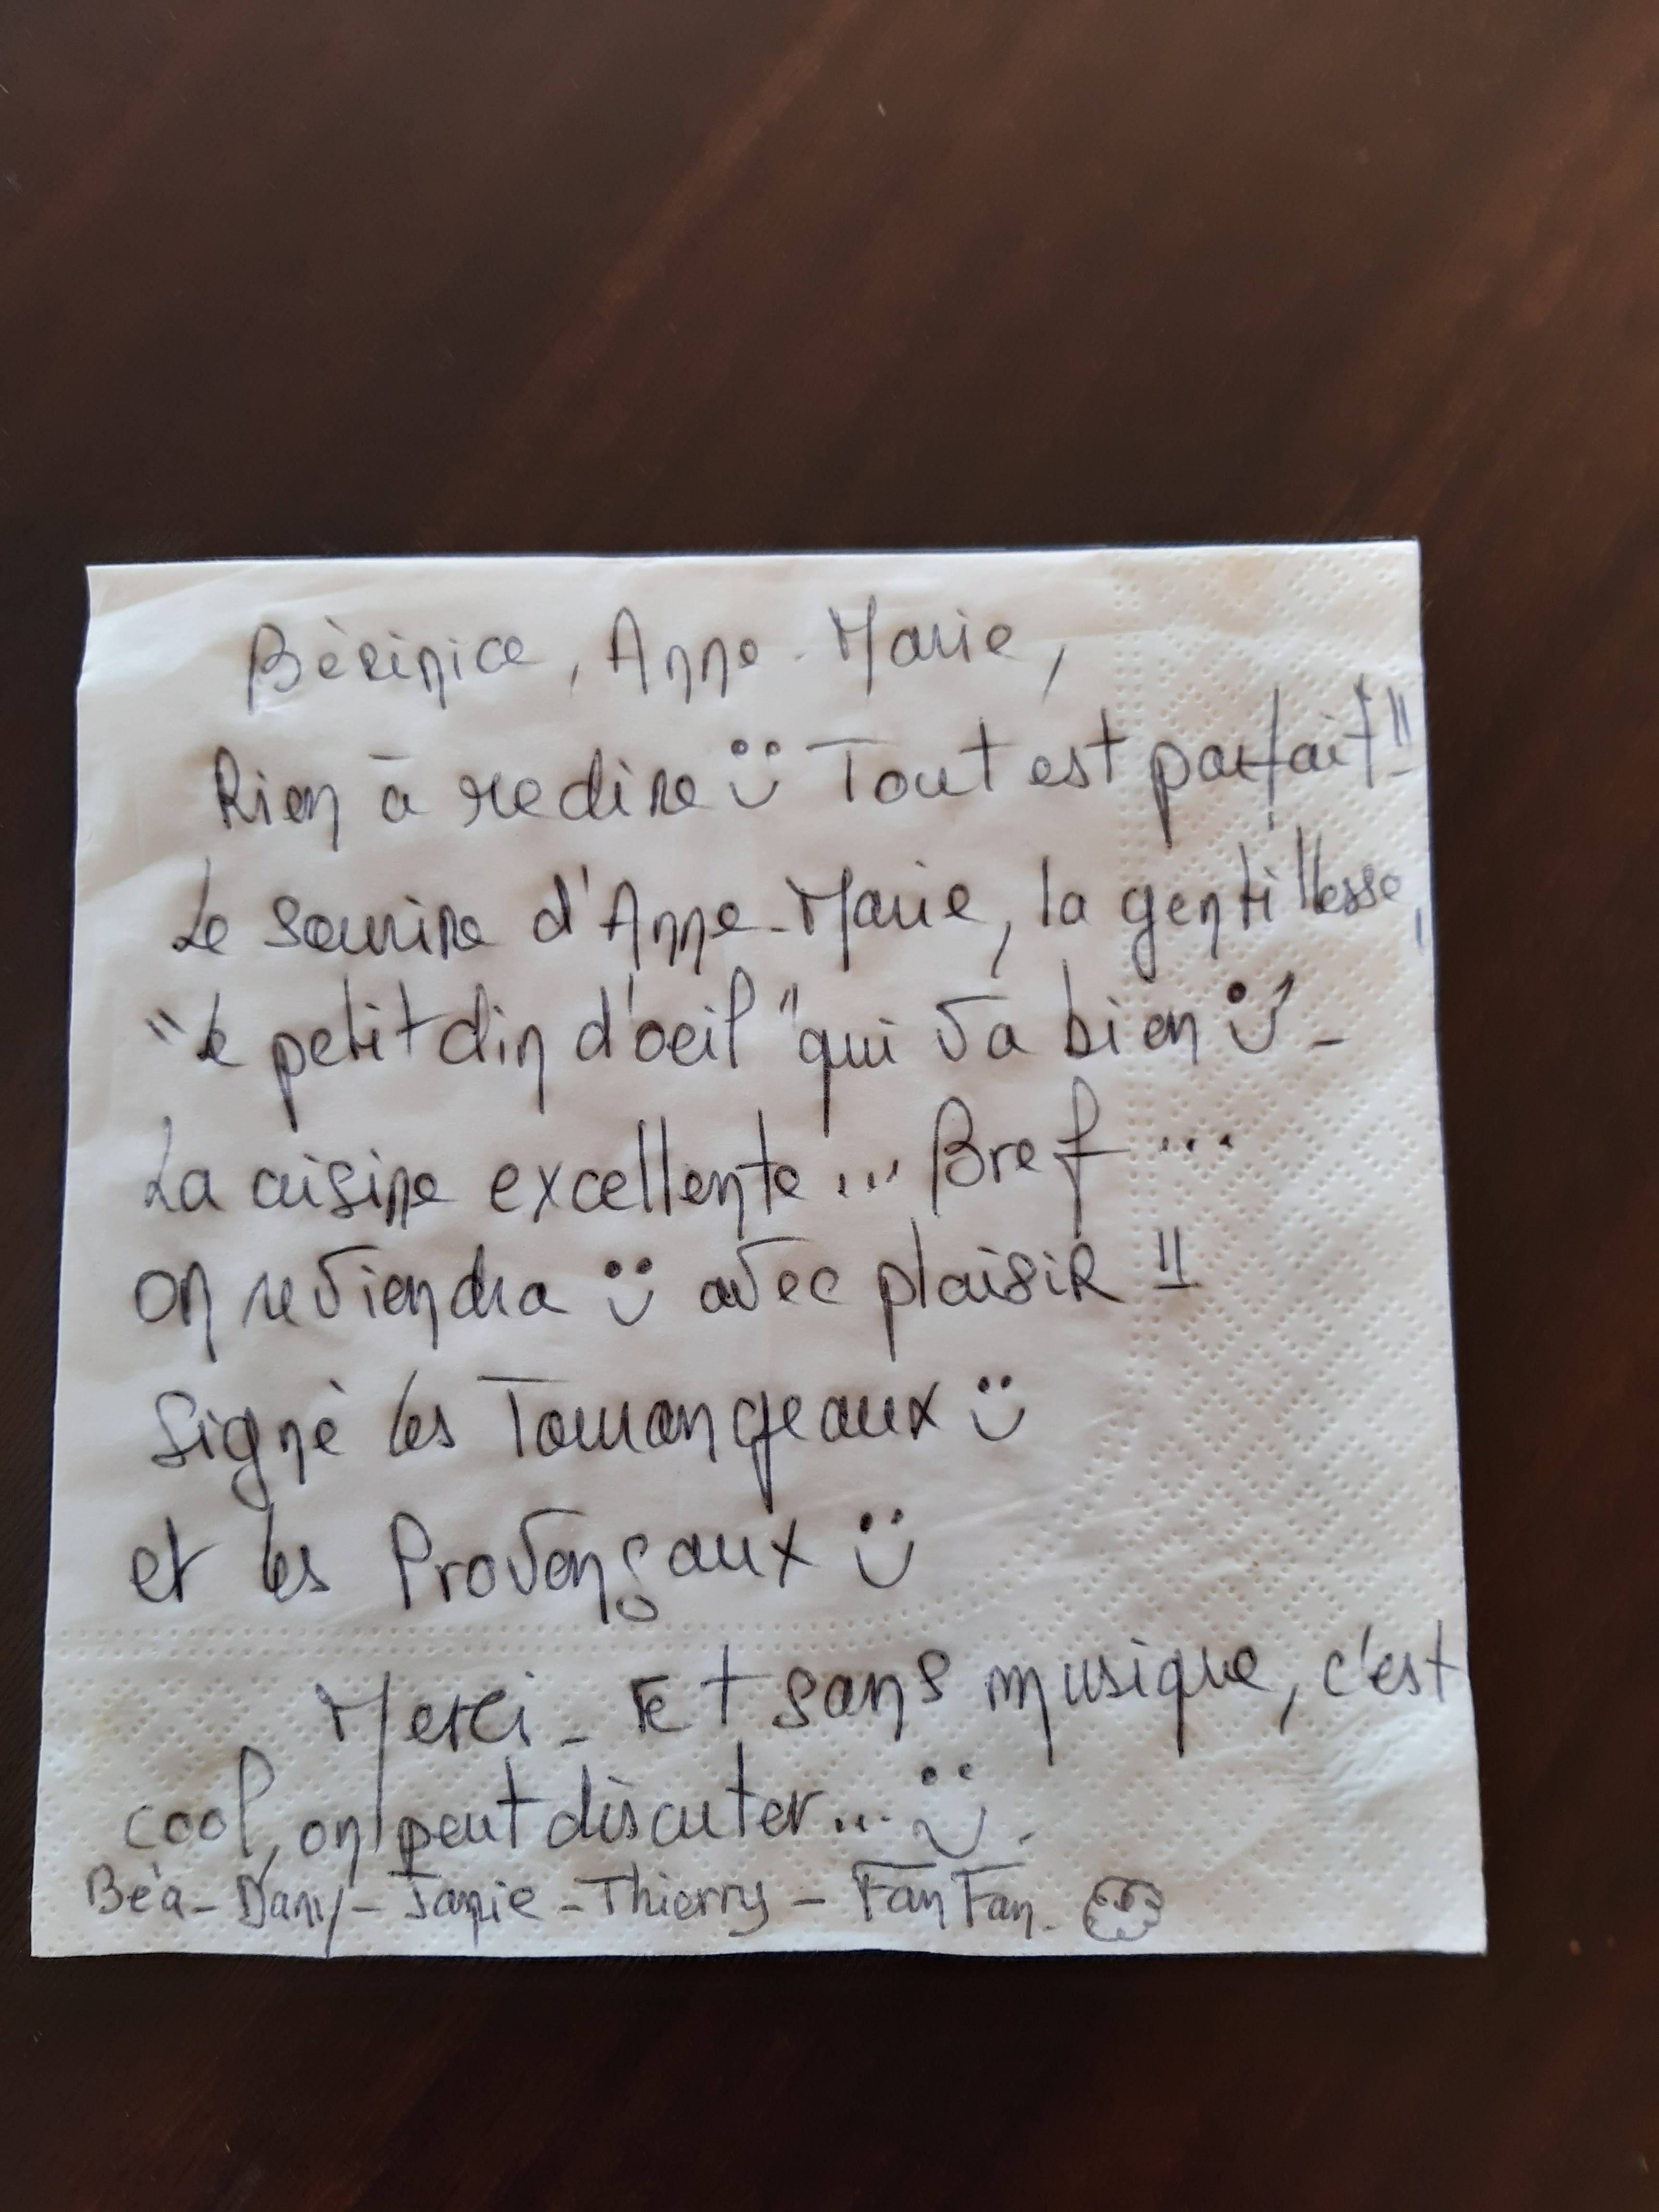 Bèrinice, Anne-Marie,
Rien à redire Tout est parfait !!
Le sourire d'Anne-Marie, la gentillesse,
"le petit clin d'oeil" qui va bien -
La cuisine excellente... Bref...
on reviendra avec plaisir !!
Signè les Tourangeaux
et les Provençaux
Merci - Et sans musique, c'est
cool, on peut discuter...
Béa - Dany - Janie - Thierry - FanFan.